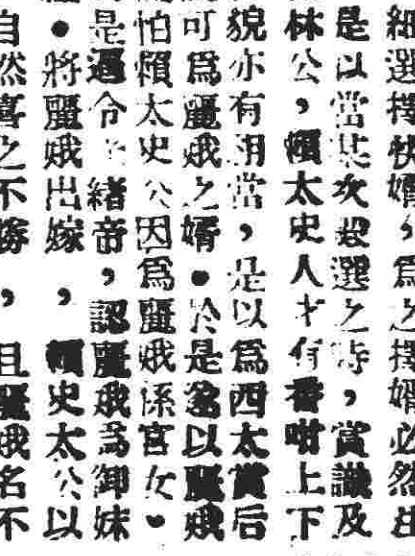 細選擇快婿，爲之擇婿必然
是以當其次選之時，賞識及
林公，賴太史人才有番咁上下
貌亦有相當，是以爲西太賞后
可爲麗娥之婿●於是以麗娥
怕賴太史公因爲麗娥係宮女●
是令緒帝，認麗娥爲御妹
●將麗娥出嫁，賴史太公以
自然喜之不勝，且麗娥名不